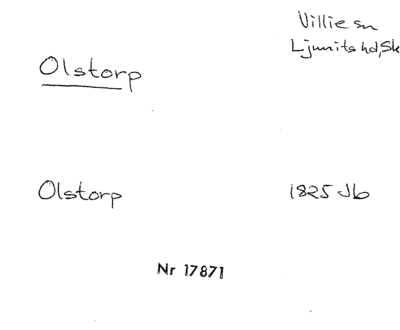 Villie sn
Ljunits hd, Sk
Olstorp
Olstorp 1825 Jb
Nr 17871